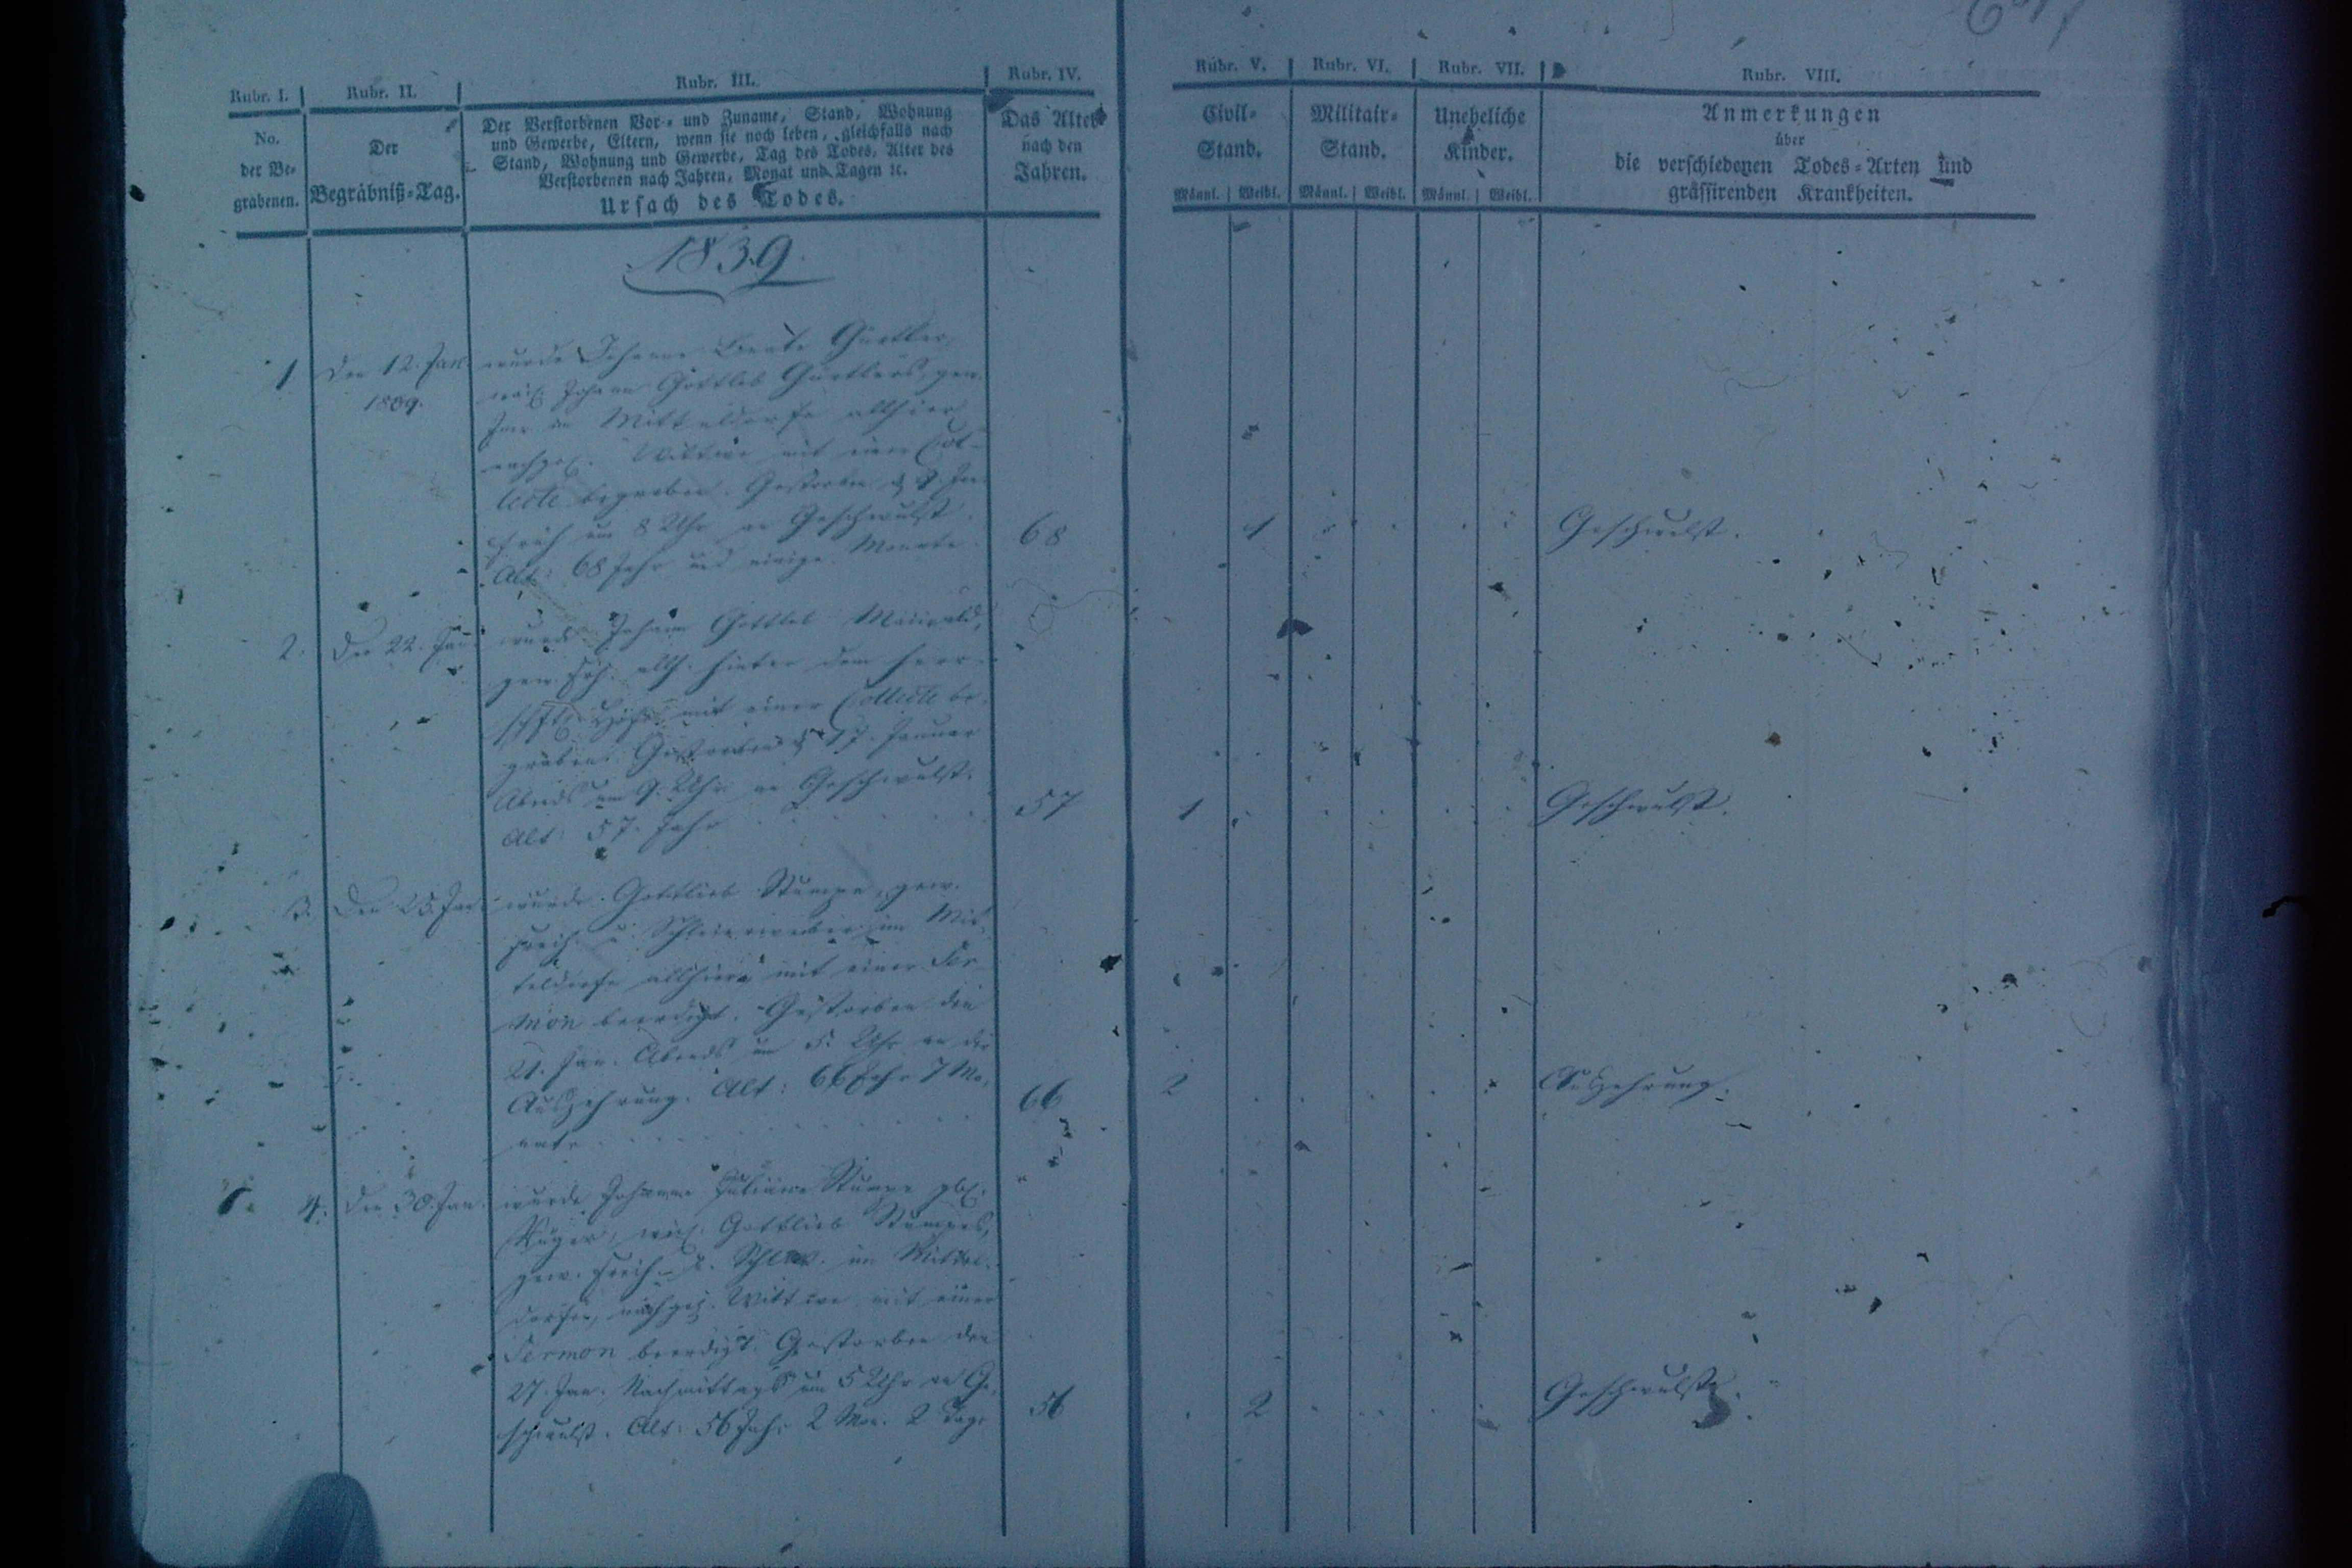 Rubr. I.
No.
der Be-
grabenen.
Rubr. II.
Der
Begräbniß-Tag.
Rubr. III.
Der Verstorbenen Vor- und Zuname, Stand, Wohnung
und Gewerbe, Eltern, wenn sie noch leben, gleichfalls nach
Stand, Wohnung und Gewerbe, Tag des Todes, Alter des
Verstorbenen nach Jahren, Monat und Tagen ꝛc.
Ursach des Todes.
Rubr. IV.
Das Alter
nach den
Jahren.
Rubr. V.
Civil-
Stand.
Männl. Weibl.
Rubr. VI.
Militair-
Stand.
Männl. Weibl.
Rubr. VII.
Uneheliche
Kinder.
Männl. Weibl.
Rubr. VIII.
Anmerkungen
über
die verschiedenen Todes-Arten und
grässirenden Krankheiten.
1839.
1. Den 12. Jan.
1839.
wurde Johanne Beate Gürtler,
Johann Gottlob Gürtlers, gew.
im Mitteldorfe allhier
Wittwe mit einer Col-
lecte begraben. Gestorben d. Jan.
früh um 8 Uhr an Geschwulst.
Alt: 68 Jahr und einige Monate.
68
1
Geschwulst.
2. Den 22. Jan.
wurde Johann Gottlob Maiwald,
gew. allh. hinter dem herr-
mit einer Collecte be-
graben. Gestorben d. 17. Januar
Abends um 9. Uhr an Geschwulst.
Alt: 57. Jahr
57
1
Geschwulst.
3. Den 25. Jan.
wurde Gottlieb Stumpe, gew.
Freih. u. Schleierweber im Mit-
teldorfe allhier mit einer Ser-
mon beerdigt. Gestorben den
21. Jan. Abends um 5. Uhr an der
Auszehrung. Alt: 66 Jahr 7 Mo-
nate
66
2
Auszehrung.
4. Den 30. Jan.
wurde Johanne Juliane Stumpe geb.
Gottlieb Stumpes,
gew. Freih. u. Schlrw. im Mittel-
dorfe, Wittwe mit einer
Sermon beerdigt. Gestorben den
27. Jan. Nachmittags um 5 Uhr an Ge-
schwulst. Alt: 56 Jahr 2 Mon. 2 Tage
56
2
Geschwulst.